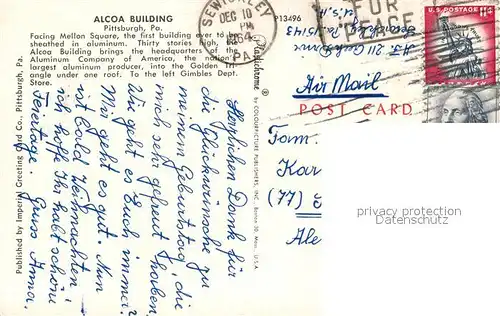 ALCOA BUILDING
Pittsburgh, Pa.
Facing Mellon Square, the first building ever to be
sheathed in aluminum. Thirty stories high, the
Alcoa Building brings the headquarters of the
Aluminum Company of America, the nation's
largest aluminum producer, into the Golden Tri-
angle under one roof. To the left Gimbles Dept.
Store.
P13496
SEWICKLEY
DEC 10
PM
1964
PA
U.S. POSTAGE 11¢
Air Mail
POST CARD
Fam.
Kar
(77)
Ale
privacy protection
Herzlichen Dank für
die Glückwünsche zu
meinem Geburtstag, die
mich sehr gefreut haben.
Wie geht es Euch immer?
Mir geht es gut. Nun
ist bald Weihnachten
ich hoffe Ihr habt schöne
Feiertage. Gruss Anna.
Published by Imperial Greeting Card Co., Pittsburgh, Pa.
Plastichrome ® by COLOURPICTURE PUBLISHERS, INC., Boston 30, Mass. U.S.A.